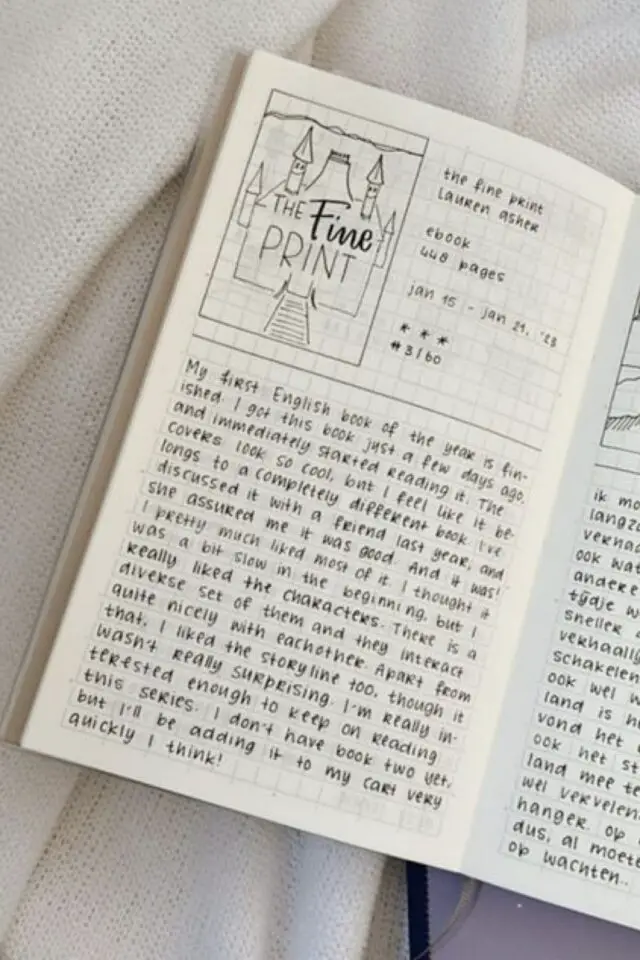 THE Fine
PRINT
the fine print
Lauren asher
ebook
448 pages
jan 15 - jan 21, '23
* * *
#3/60
My first English book of the year is fin-
ished. I got this book just a few days ago,
and immediately started reading it. The
covers look so cool, but I feel like it be-
longs to a completely different book. I've
discussed it with a friend last year, and
she assured me it was good. And it was!
I pretty much liked most of it. I thought it
was a bit slow in the beginning, but I
really liked the characters. There is a
diverse set of them and they interact
quite nicely with eachother. Apart from
that, I liked the storyline too, though it
wasn't really surprising. I'm really in-
terested enough to keep on reading
this series. I don't have book two yet,
but I'll be adding it to my cart very
quickly I think!
ik mo
langza
verhaa
ook wat
andere
tijdje w
sneller
verhaallij
schakelen
ook wel w
land is he
vond het
ook het st
land mee te
wel vervelen
hanger. op
dus, al moete
op wachten..